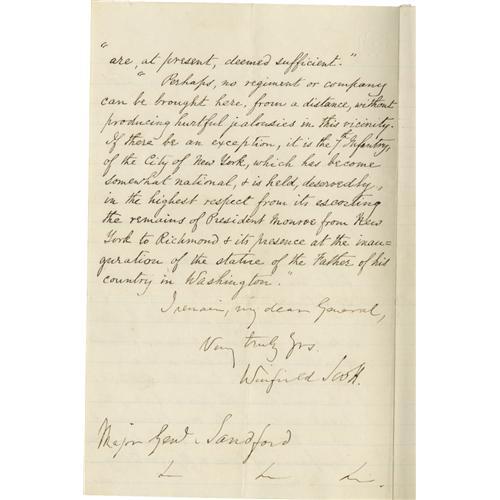 "are, at present, deemed sufficient."
"Perhaps, no regiment or company
can be brought here, from a distance, without
producing hurtful jealousies in this vicinity.
If there be an exception, it is the 7th Infantry,
of the City of New York, which has become
somewhat national, & is held, deservedly,
in the highest respect from its escorting
the remains of President Monroe from New
York to Richmond & its presence at the inau=
guration of the statue of the Father of his
country in Washington."
I remain, my dear General,
Very truly Yrs.
Winfield Scott.
Major Genl. Sandford